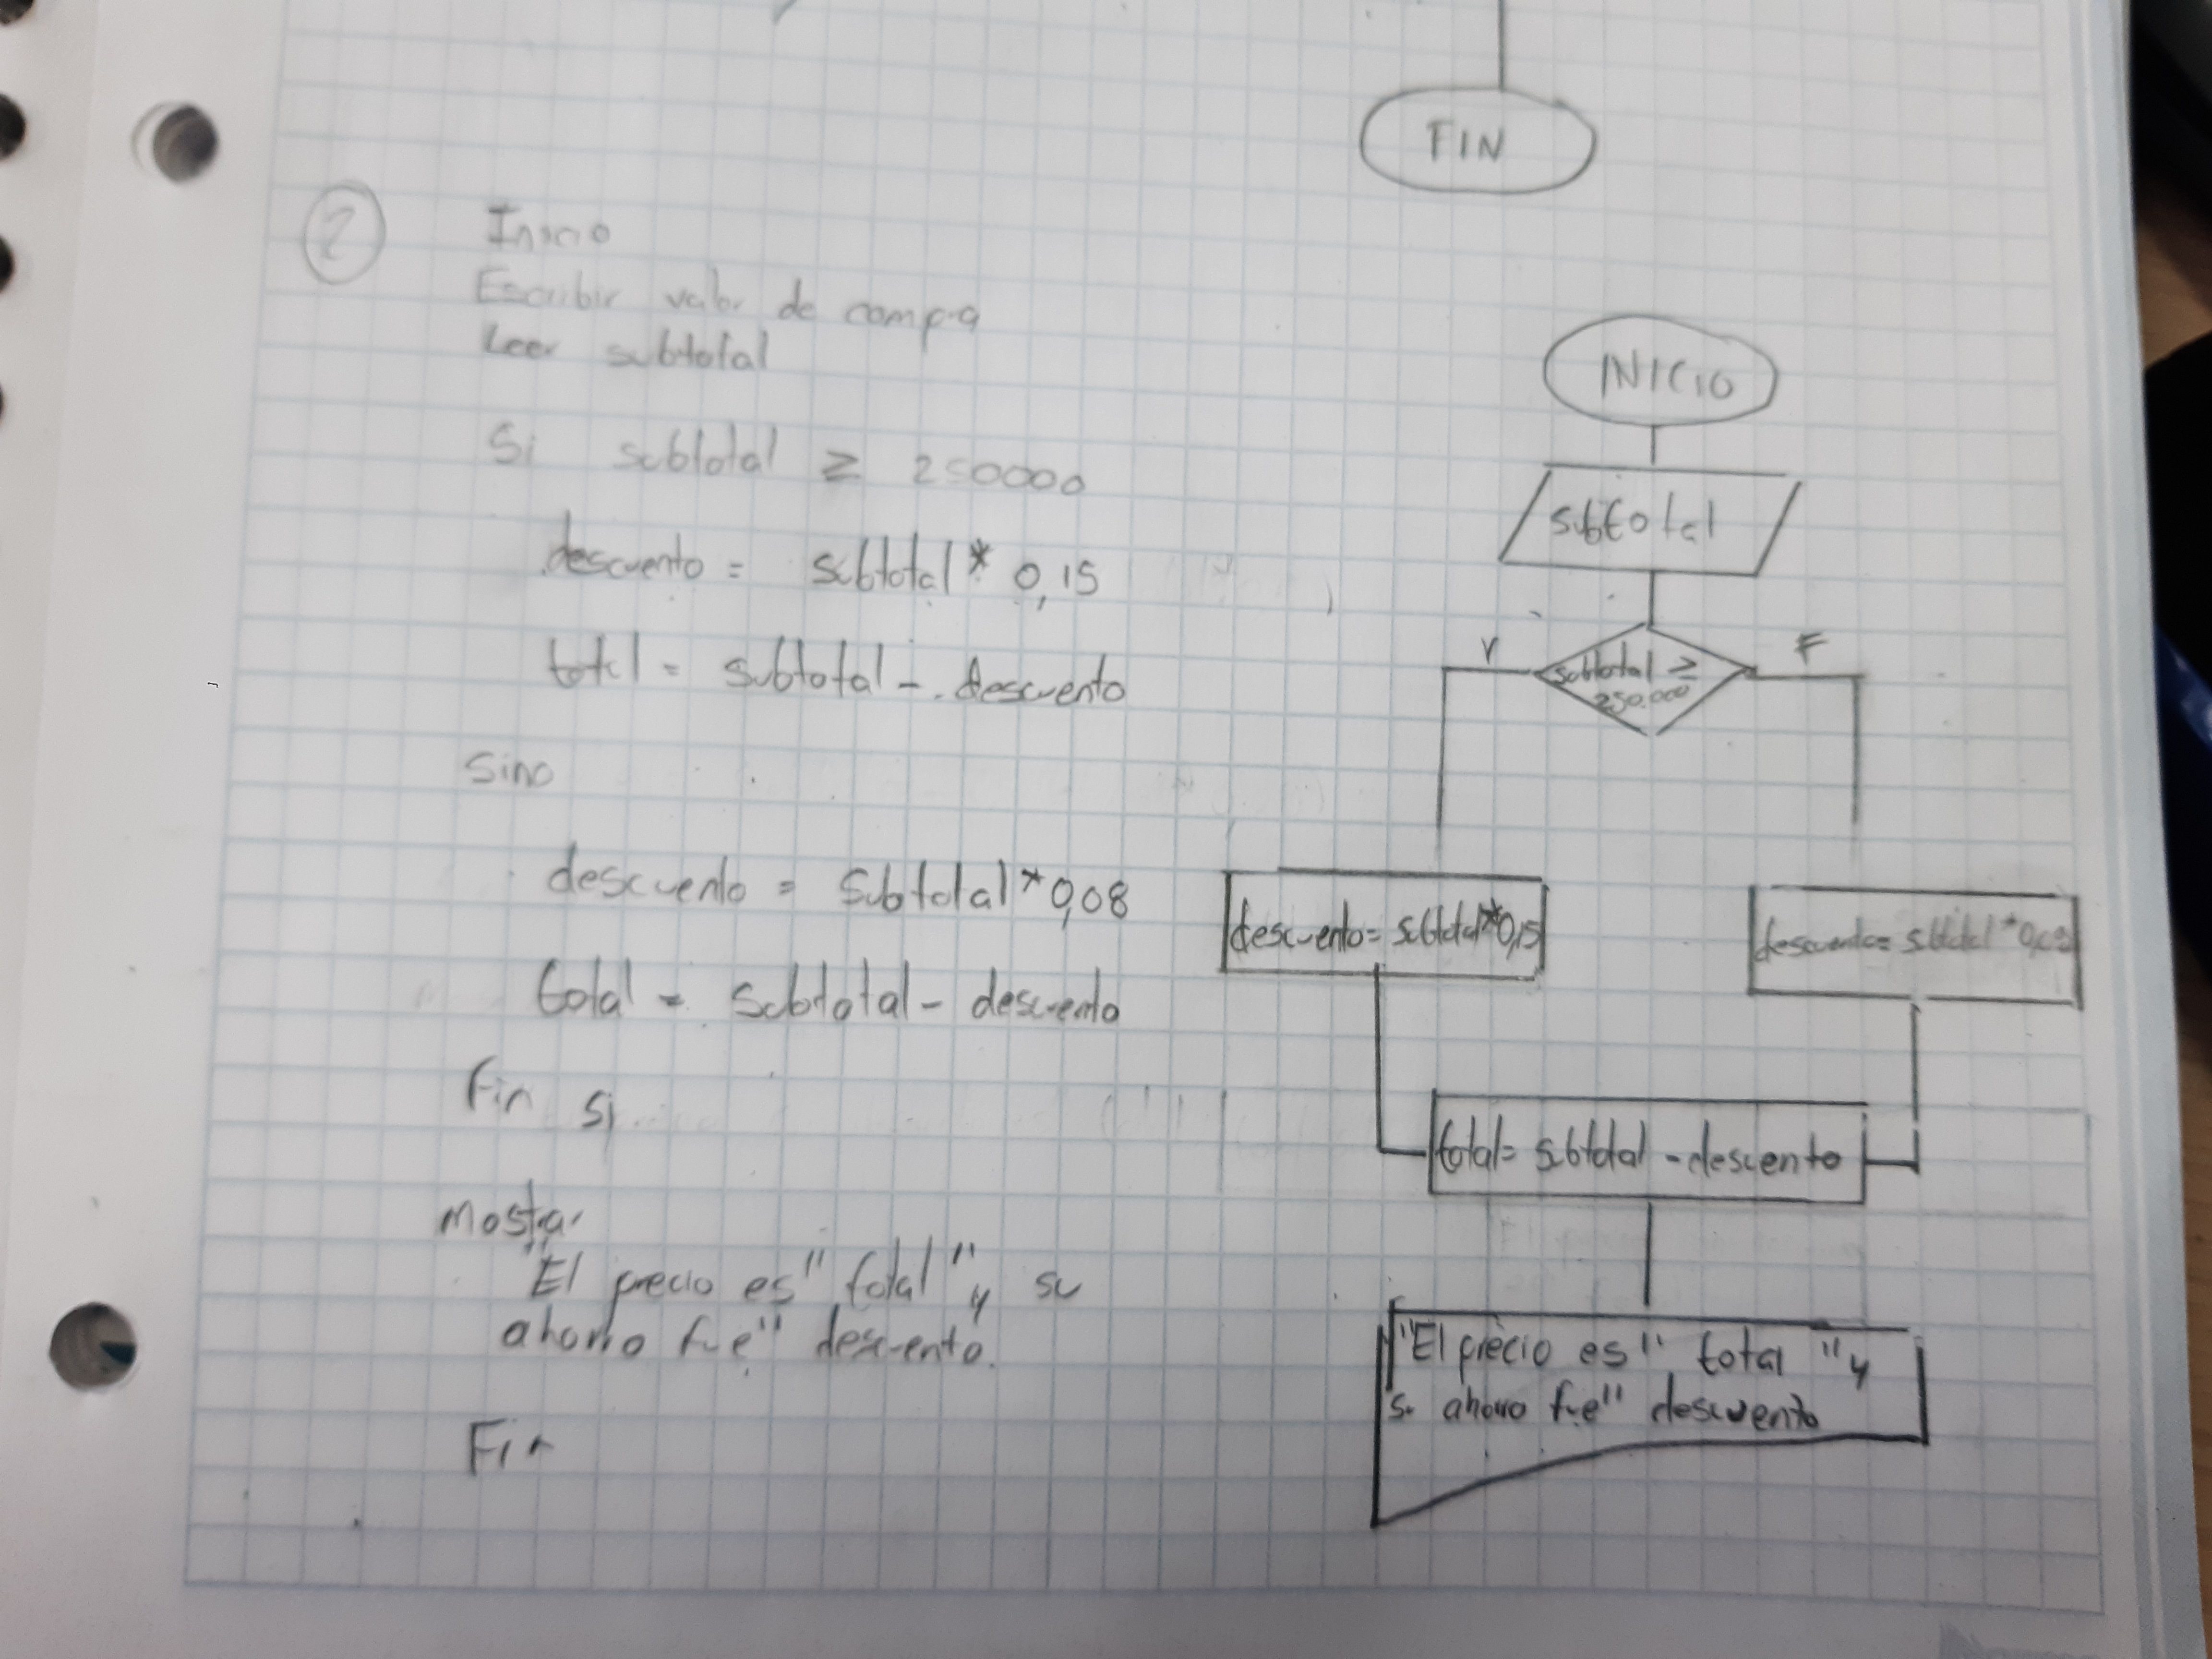 FIN
2
Inicio
Escribir valor de compra
Leer subtotal
Si subtotal ≥ 250000
descuento = subtotal * 0,15
total = subtotal - descuento
Sino
descuento = subtotal * 0,08
total = subtotal - descuento
Fin si
mostrar
"El precio es" total "y su
ahorro fue" descuento.
Fin
INICIO
subtotal
V
F
subtotal ≥
250.000
descuento = subtotal * 0,15
descuento = subtotal * 0,08
total = subtotal - descuento
"El precio es" total "y
su ahorro fue" descuento